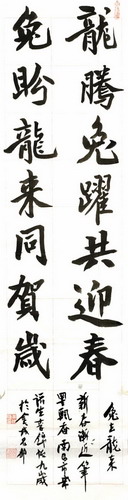 龍騰兔躍共迎春
兔盼龍来同賀歲
兔去龍来
新春漸近筆
墨飄香南昌